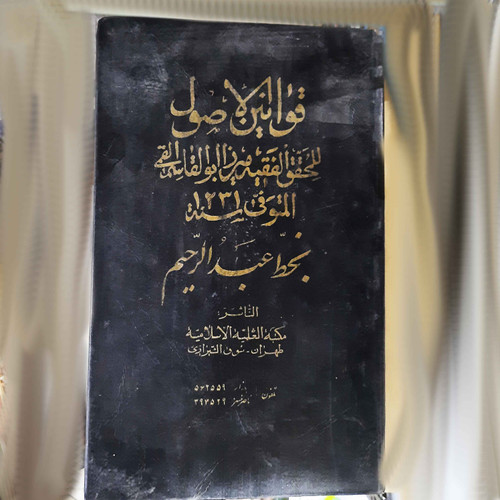 قوانين الاصول
للمحقق الفقيه ميرزا ابو القاسم القمى
المتوفى سنة ١٢٣١
بخط عبد الرحيم
الناشر:
مكتبة العلمية الاسلامية
طهران - سوق الشيرازى
تلفون بازار ٥٦٢٥٥٩
ناصرخسرو ٣٩٧٥٢٩